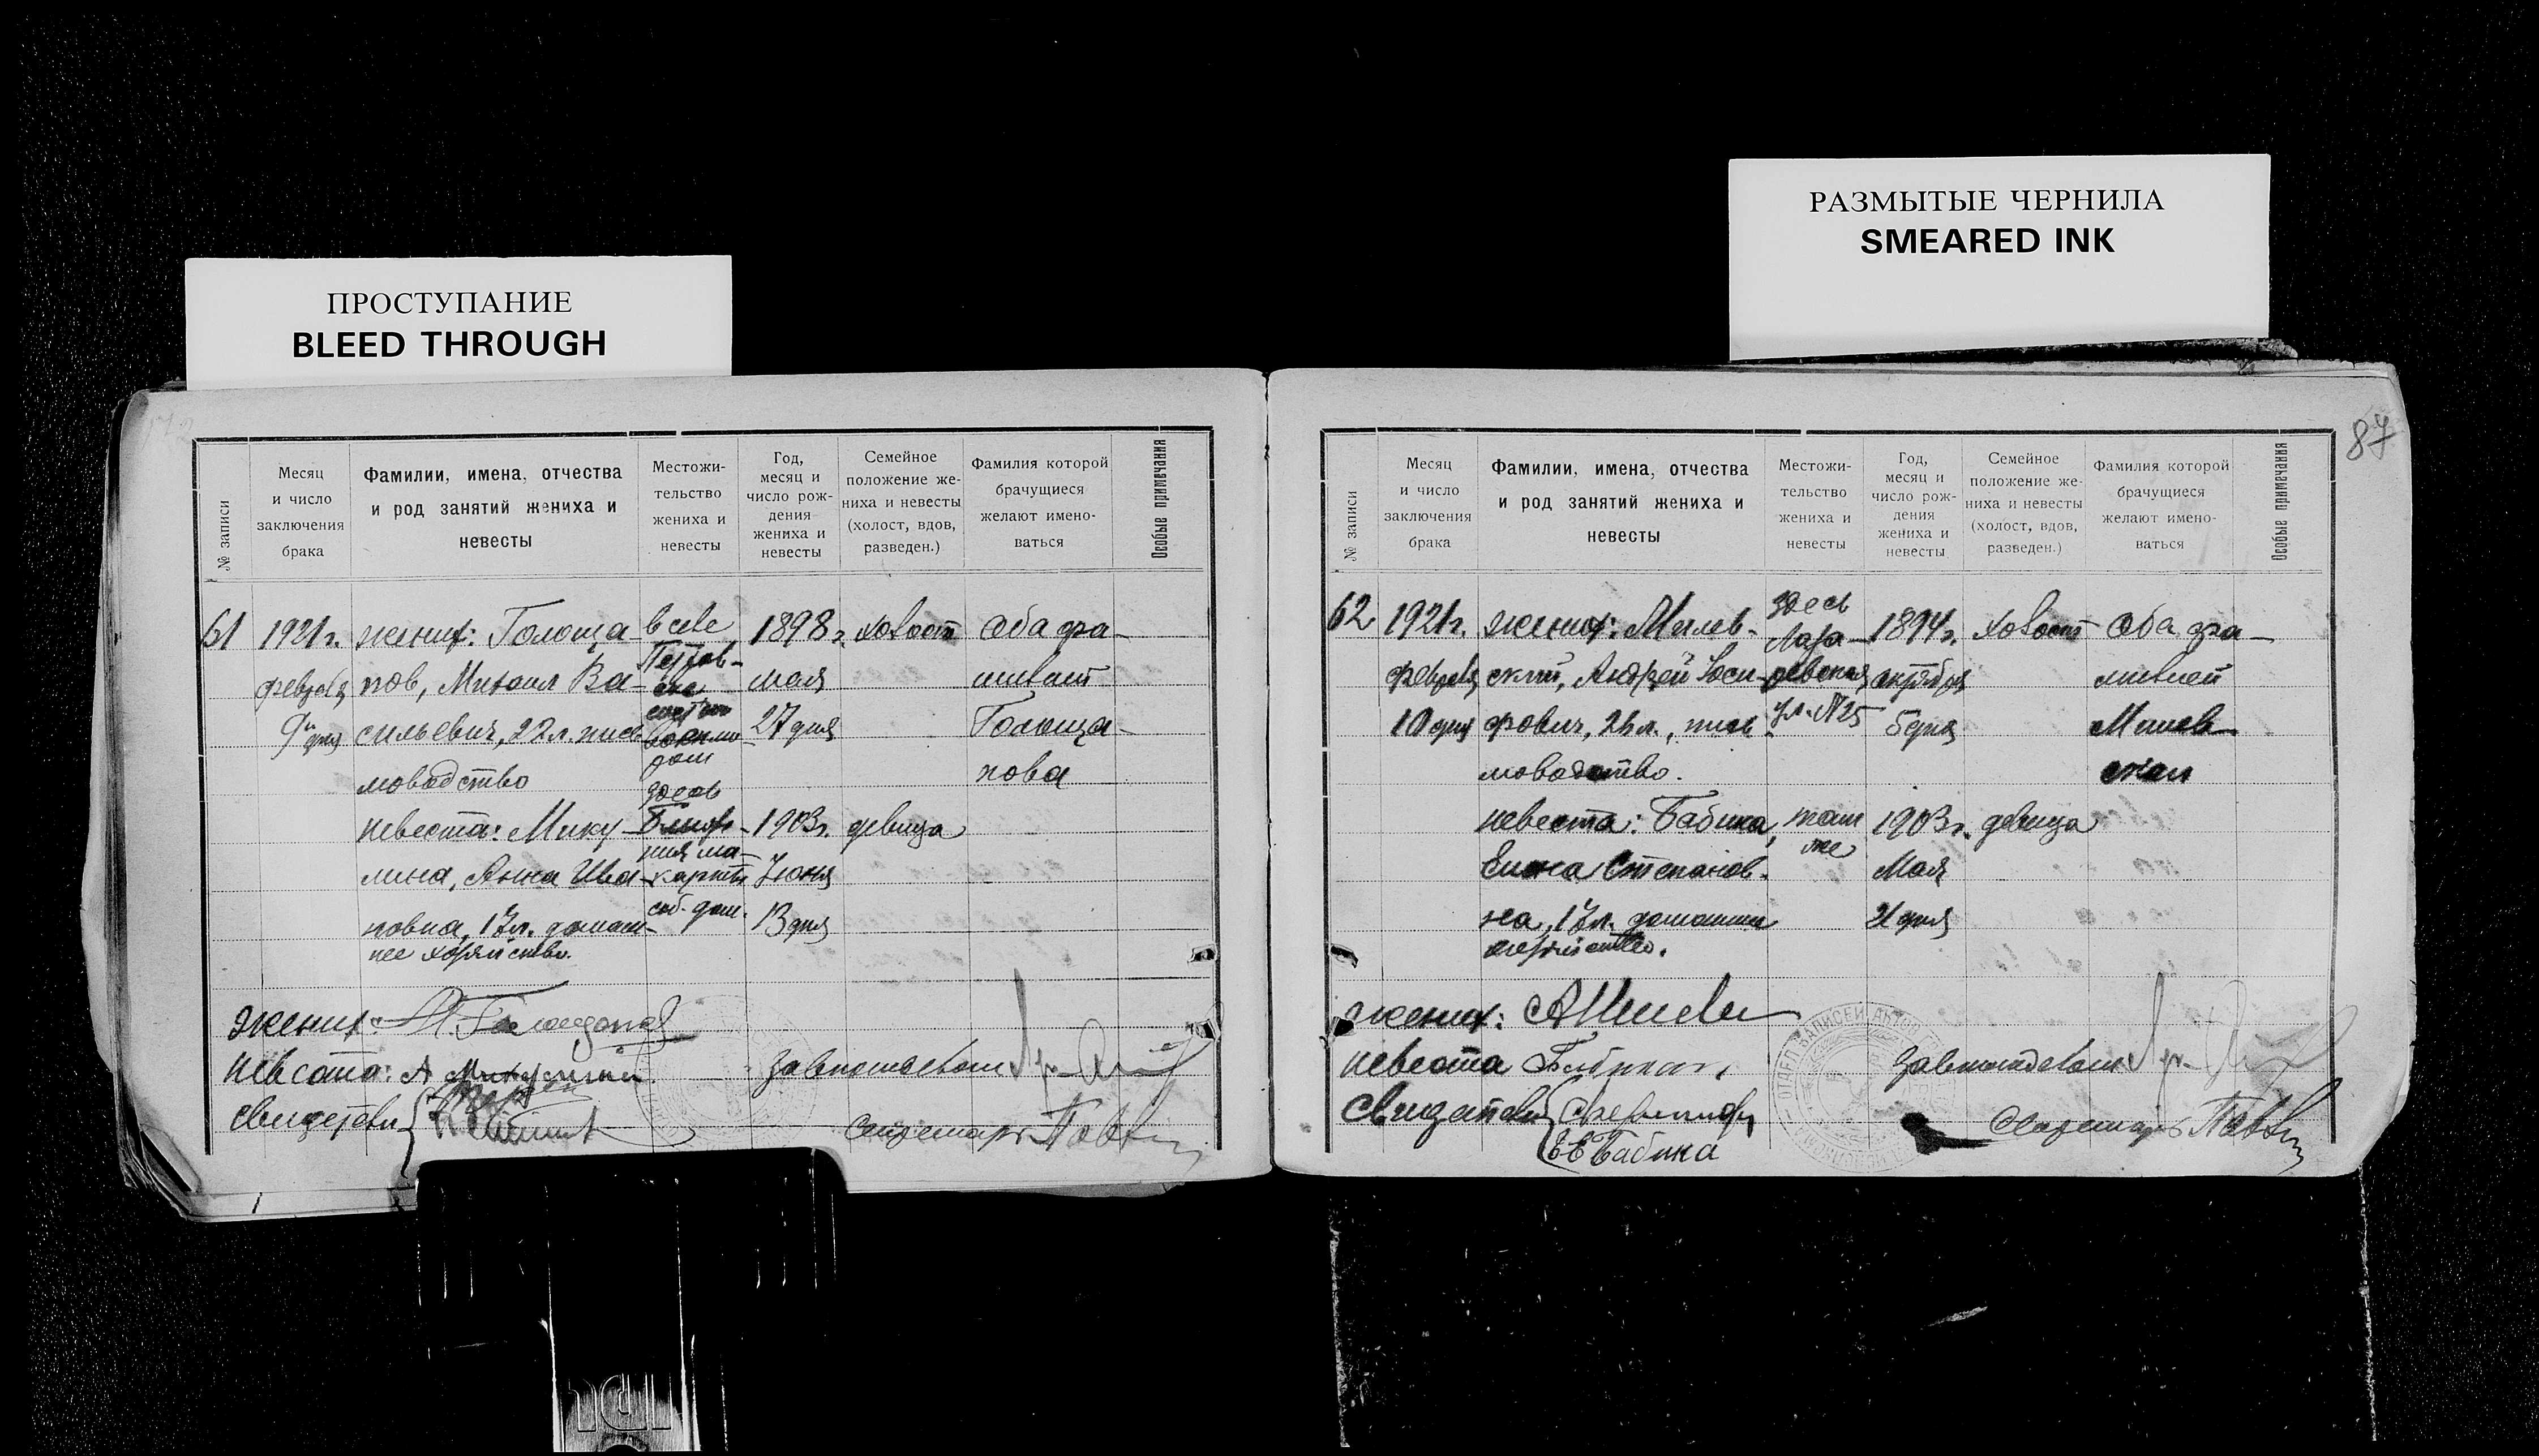 ПРОСТУПАНИЕ
BLEED THROUGH
№ записи
Месяц
и число
заключения
брака
Фамилии, имена, отчества
и род занятий жениха и
невесты
Местожи-
тельство
жениха и
невесты
Год,
месяц и
число рож-
дения
жениха и
невесты
Семейное
положение же-
ниха и невесты
(холост, вдов,
разведен.)
Фамилия которой
брачущиеся
желают имено-
ваться
Особые примечания
61
1921 г.
февраля
9 дня
жених: Голоща-
пов, Михаил Ва-
сильевич, 22 л. пись-
моводство
невеста: Мику-
лина, Анна Ива-
новна, 17 л. домаш-
нее хозяйство.
в селе
Петров-
ске
здесь
соб. дом.
1898 г.
мая
27 дня
1903 г.
Июня
13 дня
холост
девица
Оба фа-
милией
Голоща-
пова
жених: М. Голощапов
невеста: А Микулина
свидетели
завподотделом
Секретарь
РАЗМЫТЫЕ ЧЕРНИЛА
SMEARED INK
87
№ записи
Месяц
и число
заключения
брака
Фамилии, имена, отчества
и род занятий жениха и
невесты
Местожи-
тельство
жениха и
невесты
Год,
месяц и
число рож-
дения
жениха и
невесты
Семейное
положение же-
ниха и невесты
(холост, вдов,
разведен.)
Фамилия которой
брачущиеся
желают имено-
ваться
Особые примечания
62
1921 г.
февраля
10 дня
жених: Милев-
ский, Андрей Иоси-
фович, 26 л., пись-
моводство.
невеста: Бабина,
Елена Степанов-
на, 17 л. домашнее
хозяйство.
здесь
Лаза-
ревская
ул. № 25
там
же
1894 г.
октября
5 дня
1903 г.
Мая
21 дня
холост
девица
Оба фа-
милией
Милев-
ская
жених:
невеста Бабина
Свидетели
Е Бабина
завподотделом
Секретарь